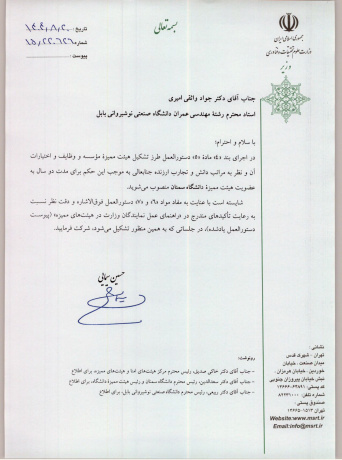 بسمه تعالی
جمهوری اسلامی ایران
وزارت علوم، تحقیقات و فناوری
وزیر
تاریخ:
شماره: ۱۵/۲۲۶۲۶
پیوست:
جناب آقای دکتر جواد واثقی امیری
استاد محترم رشتهٔ مهندسی عمران دانشگاه صنعتی نوشیروانی بابل
با سلام و احترام؛
در اجرای بند «۵» مادهٔ «۵» دستورالعمل طرز تشکیل هیئت ممیزهٔ مؤسسه و وظایف و اختیارات
آن و نظر به مراتب دانش و تجارب ارزنده جنابعالی به موجب این حکم برای مدت دو سال به
عضویت هیئت ممیزهٔ دانشگاه سمنان منصوب می‌شوید.
شایسته است با عنایت به مفاد مواد «۶» و «۷» دستورالعمل فوق‌الاشاره و دقت نظر نسبت
به رعایت تأکیدهای مندرج در «راهنمای عمل نمایندگان وزارت در هیئت‌های ممیزه» (پیوست
دستورالعمل یادشده)، در جلساتی که به همین منظور تشکیل می‌شود، شرکت فرمایید.
حسین سیمایی
رونوشت:
- جناب آقای دکتر خاکی صدیق، رئیس محترم مرکز هیئت‌های امنا و هیئت‌های ممیزه، برای اطلاع
- جناب آقای دکتر سعدالدین، رئیس محترم دانشگاه سمنان و رئیس هیئت ممیزهٔ دانشگاه، برای اطلاع
- جناب آقای دکتر ربیعی، رئیس محترم دانشگاه صنعتی نوشیروانی بابل، برای اطلاع
نشانی:
تهران - شهرک قدس
میدان صنعت، خیابان
خوردین، خیابان هرمزان،
نبش خیابان پیروزان جنوبی
کد پستی: ۱۴۶۶۶-۶۴۸۹۱
شماره تلفن: ۸۲۲۳۱۰۰۰
صندوق پستی:
تهران ۱۵۱۳-۱۴۶۶۵
Website:www.msrt.ir
Email:info@msrt.ir